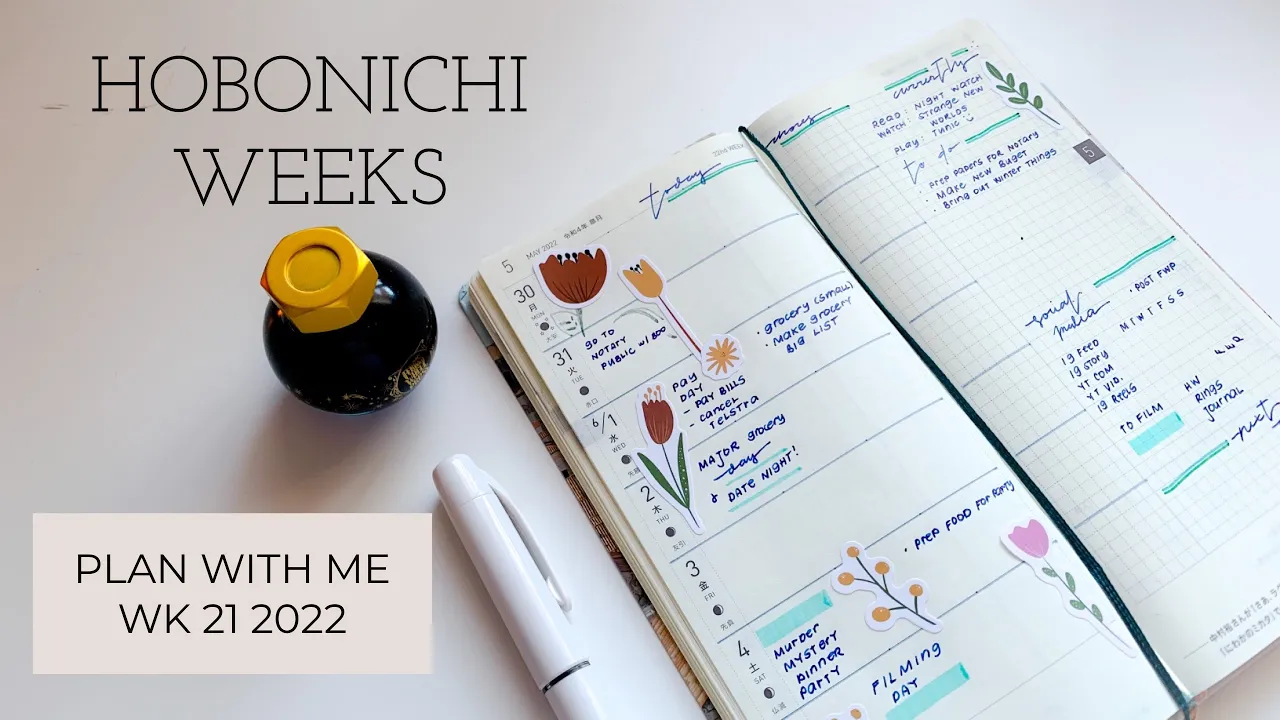 HOBONICHI
WEEKS
PLAN WITH ME
WK 21 2022
22ND WEEK
today
5
MAY 2022
令和4年 皐月
30
月
MON
大安
GO TO
NOTARY
PUBLIC W/ BOO
• GROCERY (SMALL)
• MAKE GROCERY
BIG LIST
31
火
TUE
赤口
PAY
DAY
- PAY BILLS
- CANCEL
TELSTRA
6/1
水
WED
先勝
MAJOR GROCERY
day
& DATE NIGHT!
2
木
THU
友引
3
金
FRI
先負
• PREP FOOD FOR PARTY
4
土
SAT
仏滅
MURDER
MYSTERY
DINNER
PARTY
FILMING
DAY
chores
currently
READ: NIGHT WATCH
WATCH: STRANGE NEW
WORLDS
PLAY: TUNIC
to do
• PREP PAPERS FOR NOTARY
• MAKE NEW BUGET
• BRING OUT WINTER THINGS
5
social
media
• POST FWP
M T W T F S S
19 FEED
19 STORY
YT COM
YT VID.
19 REELS
TO FILM
HW
RINGS
JOURNAL
next